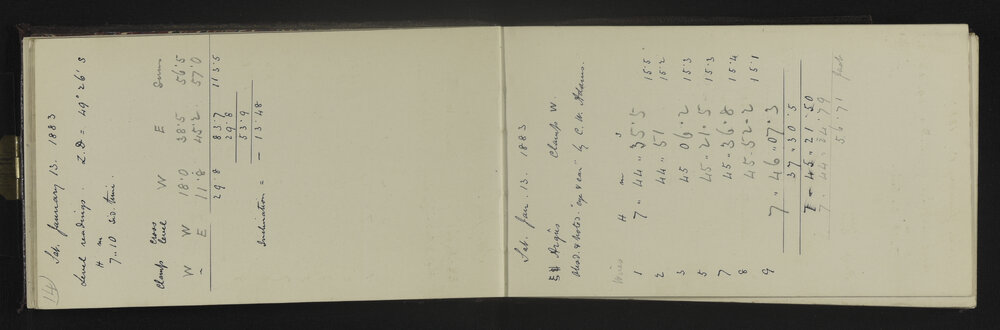 14)
Sat. January 13. 1883
Level readings. Z.D = 49° 26' S
H m
7..10 Sid. time.
Clamp Cross level W E Sum
W W 18.0 38.5 56.5
– E 11.8 45.2 57.0
29.8 83.7 113.5
29.8
53.9
Inclination = – 13.48
Sat. Jan. 13. 1883
Argûs Clamp W.
Obsd. & noted "eye & ear" by C. W. Adams.
Wires H m s
1 7.. 44.. 35.5 15.5
2 44.. 51 15.2
3 45 06.2 15.3
5 45.. 21.5 15.3
7 45.. 36.8 15.4
8 45.52.2 15.1
9 7.. 46..07.3
37..30.5
7.. 45..21.50
7.. 44.24.79
56.71